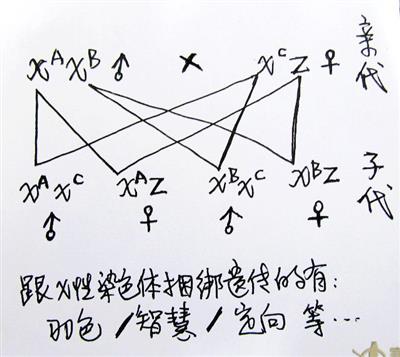 X^A X^B ♂ × X^C Z ♀ 亲代
X^A X^C X^A Z X^B X^C X^B Z 子代
♂ ♀ ♂ ♀
跟X性染色体捆绑遗传的有:
羽色/智慧/定向 等…